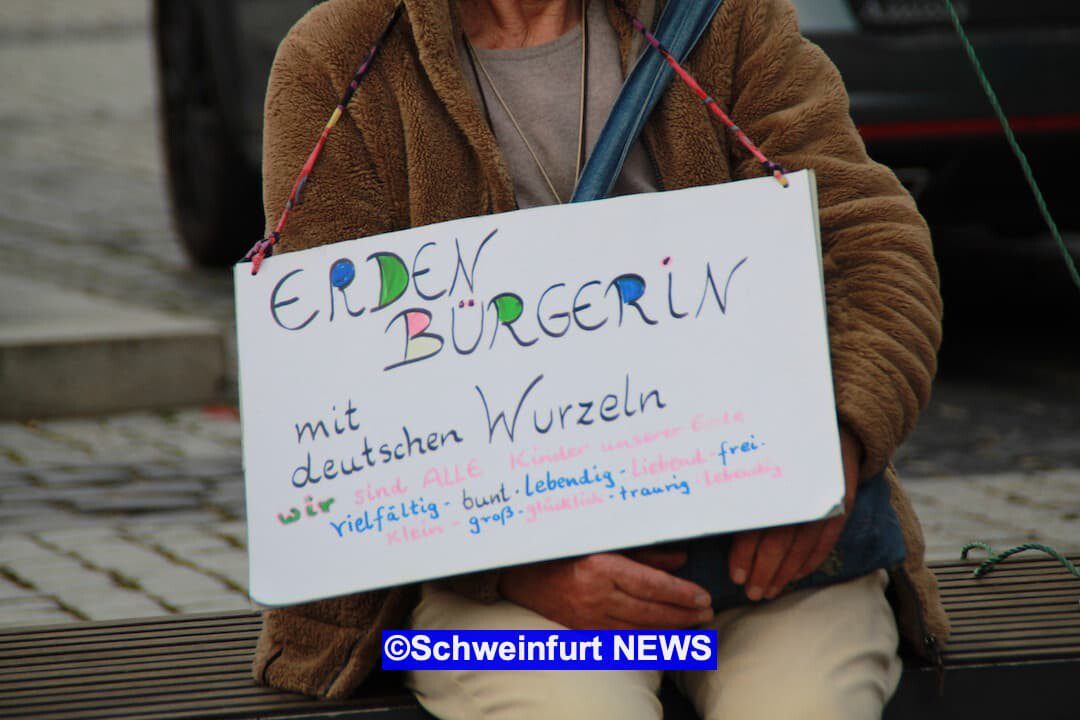 ERDEN
BÜRGERIN
mit
deutschen Wurzeln
wir sind ALLE Kinder unserer Erde
vielfältig - bunt - lebendig - liebend - frei.
klein - groß - glücklich - traurig - lebendig
©Schweinfurt NEWS